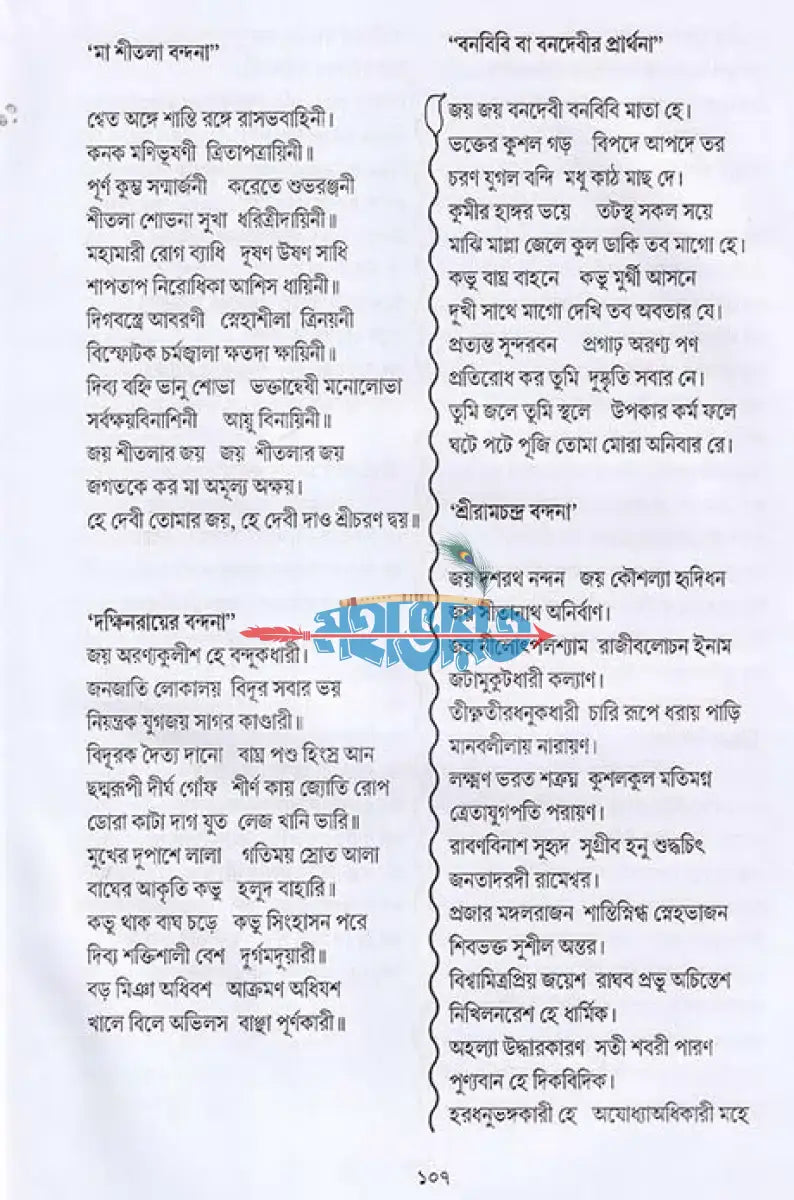 ‘মা শীতলা বন্দনা”
শ্বেত অঙ্গে শান্তি রঙ্গে রাসভবাহিনী।
কনক মণিভূষণী ত্রিতাপত্রায়িনী॥
পূর্ণ কুম্ভ সম্মার্জনী করেতে শুভরঞ্জনী
শীতলা শোভনা সুখা ধরিত্রীদায়িনী॥
মহামারী রোগ ব্যাধি দূষণ উষণ সাধি
শাপতাপ নিরোধিকা আশিস ধায়িনী॥
দিগবস্ত্রে আবরণী স্নেহাশীলা ত্রিনয়নী
বিস্ফোটক চর্মজ্বালা ক্ষতদা ক্ষায়িনী॥
দিব্য বহ্নি ভানু শোভা ভক্তান্বেষী মনোলোভা
সর্বক্ষয়বিনাশিনী আয়ু বিনায়িনী॥
জয় শীতলার জয় জয় শীতলার জয়
জগতকে কর মা অমূল্য অক্ষয়।
হে দেবী তোমার জয়, হে দেবী দাও শ্রীচরণ দ্বয়॥
‘দক্ষিনরায়ের বন্দনা”
জয় অরণ্যকুলীশ হে বন্দুকধারী।
জনজাতি লোকালয় বিদূর সবার ভয়
নিয়ন্ত্রক যুগজয় সাগর কাণ্ডারী॥
বিদূরক দৈত্য দানো বাঘ্র পশু হিংস্র আন
ছদ্মরূপী দীর্ঘ গোঁফ শীর্ণ কায় জ্যোতি রোপ
ডোরা কাটা দাগ যুত লেজ খানি ভারি॥
মুখের দুপাশে লালা গতিময় স্রোত আলা
বাঘের আকৃতি কভু হলুদ বাহারি॥
কভু থাক বাঘ চড়ে কভু সিংহাসন পরে
দিব্য শক্তিশালী বেশ দুর্গমদুয়ারী॥
বড় মিঞা অধিবশ আক্রমণ অধিযশ
খালে বিলে অভিলস বাঞ্ছা পূর্ণকারী॥
“বনবিবি বা বনদেবীর প্রার্থনা”
জয় জয় বনদেবী বনবিবি মাতা হে।
ভক্তের কুশল গড় বিপদে আপদে তর
চরণ যুগল বন্দি মধু কাঠ মাছ দে।
কুমীর হাঙ্গর ভয়ে তটস্থ সকল সয়ে
মাঝি মাল্লা জেলে কুল ডাকি তব মাগো হে।
কভু বাঘ্র বাহনে কভু মুর্গী আসনে
দুখী সাথে মাগো দেখি তব অবতার যে।
প্রত্যন্ত সুন্দরবন প্রগাঢ় অরণ্য পণ
প্রতিরোধ কর তুমি দুষ্কৃতি সবার নে।
তুমি জলে তুমি স্থলে উপকার কর্ম ফলে
ঘটে পটে পূজি তোমা মোরা অনিবার রে।
‘শ্রীরামচন্দ্র বন্দনা’
জয় দশরথ নন্দন জয় কৌশল্যা হৃদিধন
জয় সীতানাথ অনির্বাণ।
মহাভারত
জয় নীলোৎপলশ্যাম রাজীবলোচন ইনাম
জটামুকুটধারী কল্যাণ।
তীক্ষ্ণতীরধনুকধারী চারি রূপে ধরায় পাড়ি
মানবলীলায় নারায়ণ।
লক্ষ্মণ ভরত শত্রুঘ্ন কুশলকুল মতিমগ্ন
ত্রেতাযুগপতি পরায়ণ।
রাবণবিনাশ সুহৃদ সুগ্রীব হনু শুদ্ধচিৎ
জনতাদরদী রামেশ্বর।
প্রজার মঙ্গলরাজন শান্তিস্নিগ্ধ স্নেহভাজন
শিবভক্ত সুশীল অন্তর।
বিশ্বামিত্রপ্রিয় জয়েশ রাঘব প্রভু অচিন্তেশ
নিখিলনরেশ হে ধার্মিক।
অহল্যা উদ্ধারকারণ সতী শবরী পারণ
পুণ্যবান হে দিকবিদিক।
হরধনুভঙ্গকারী হে অযোধ্যাঅধিকারী মহে
১০৭